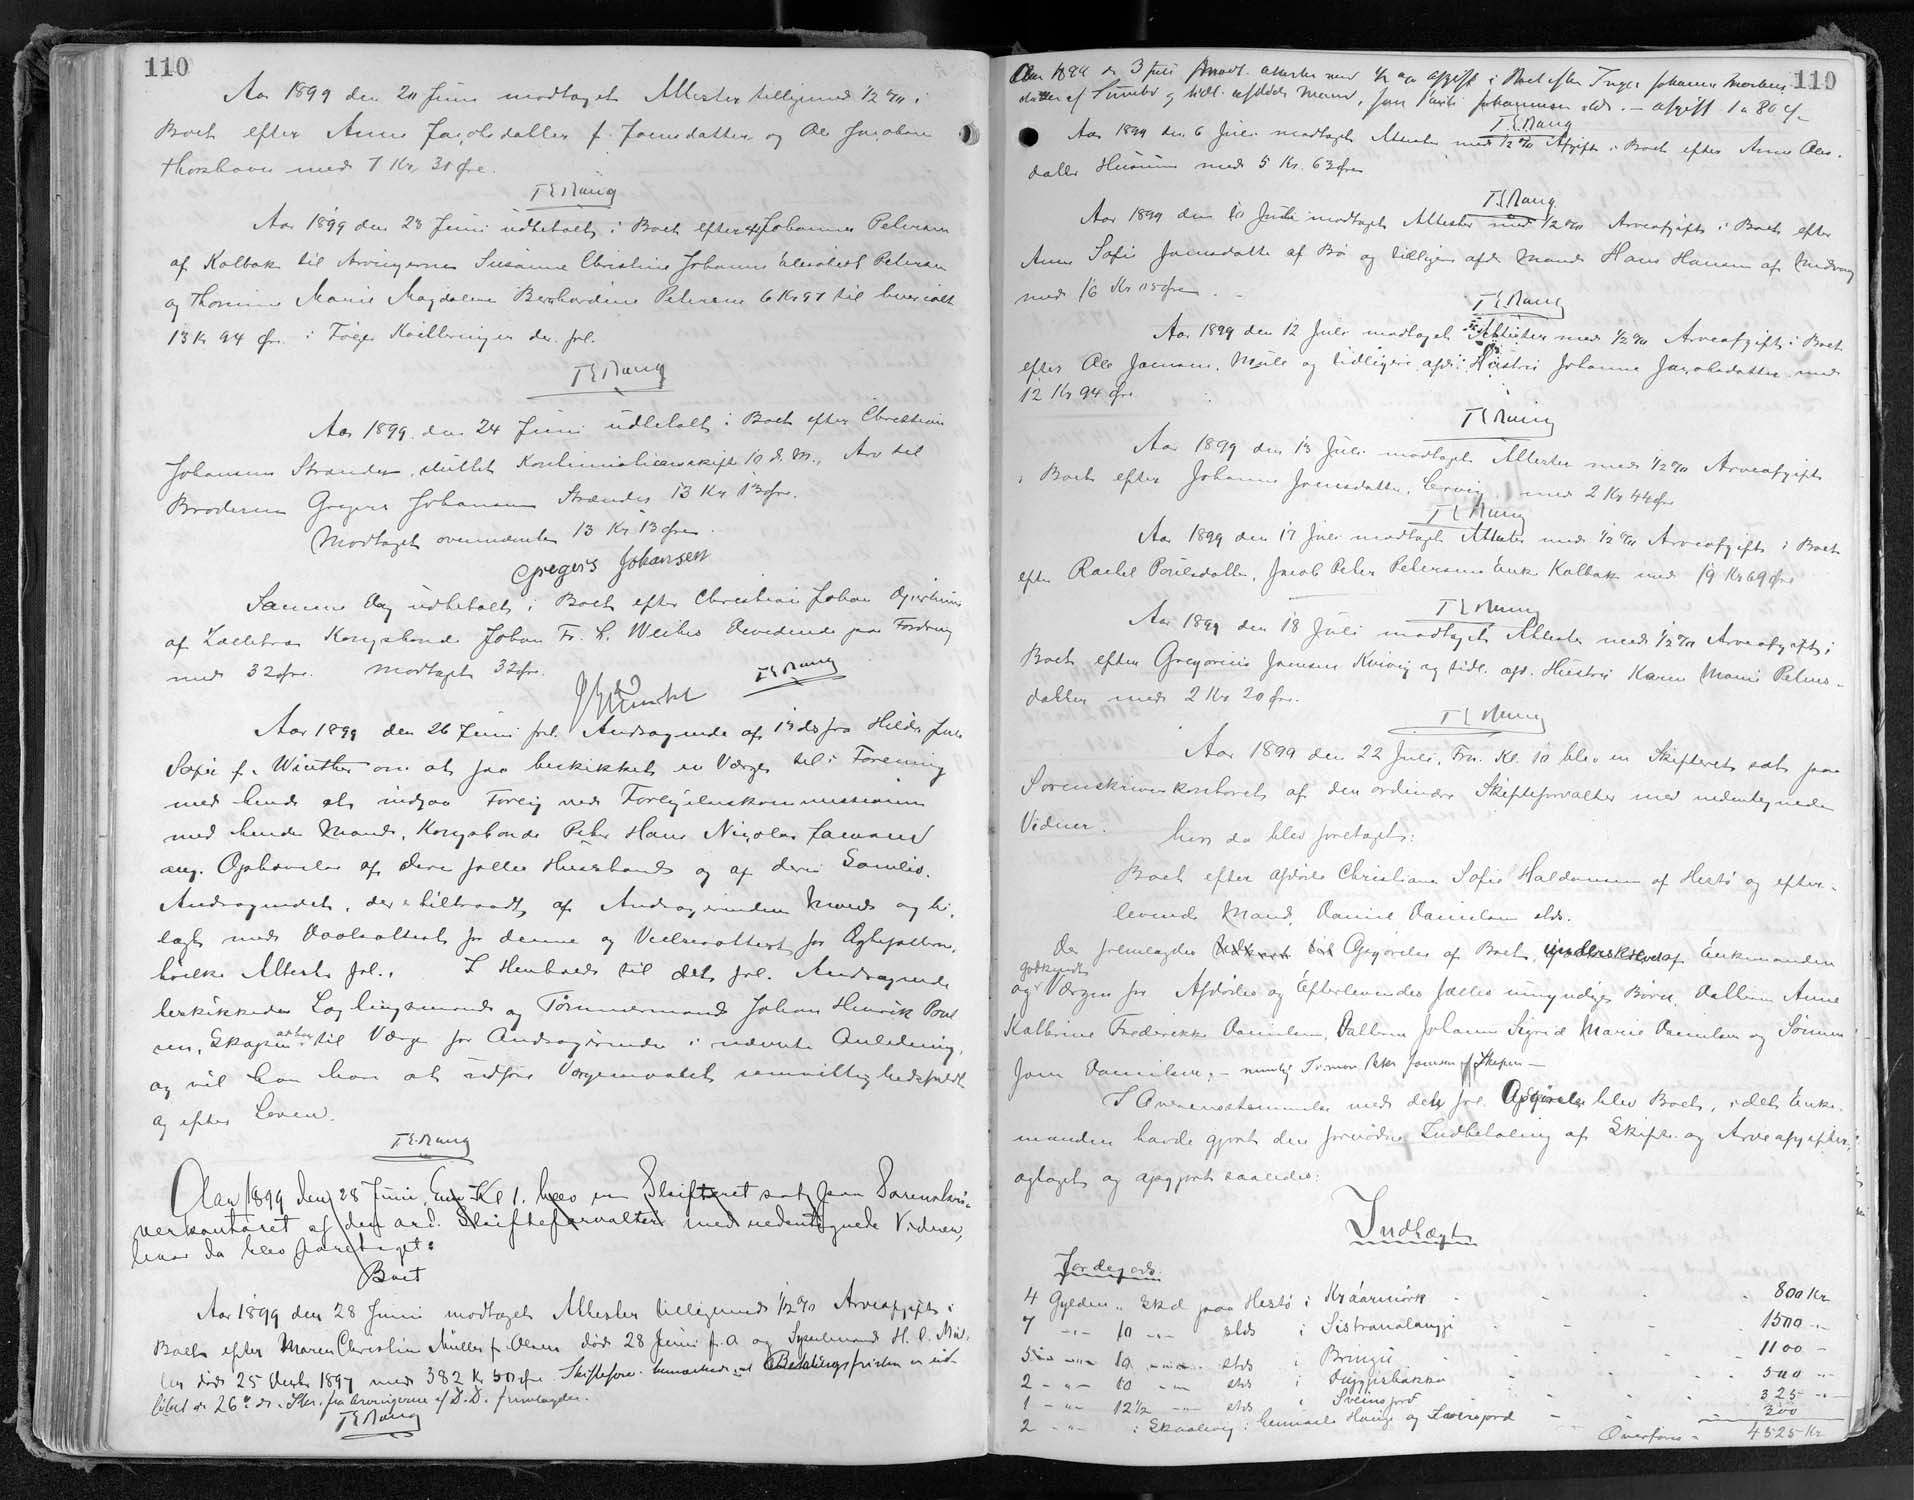 110
Aar 1899 den 20 Juni modtaget Attester tilligemed ½ % i
Boet efter Anne Jacobsdatter f. Joensdatter og Ole Jacobsen
Thorshavn med 7 Kr. 31 Øre.
T E Maug
Aar 1899 den 23 Juni udbetalt i Boet efter Johannes Petersen
af Kalbak til Arvingerne Susanne Christine Johanne Elisabeth Petersen
og Thomine Marie Magdalene Bernhardine Petersen 6 Kr 97 til hver ialt
13 Kr 94 Øre. i Følge Kvitteringer der frl.
T E Maug
Aar 1899 den 24 Juni udbetalt i Boet efter Christian
Johansen Strænder, sluttet Kontinuationsskifte 10 d. M., Arv til
Broderen Gregers Johansen Strænder 13 Kr 13 Øre.
Modtaget ovennævnte 13 Kr 13 Øre.
Gregers Johansen
Samme Dag udbetalt i Boet efter Christian Johan Djurhuus
af Kongsbonde Johan Fr. L. Weihe Dividende paa Fordring
med 32 Øre. Modtaget 32 Øre.
T E Maug
Aar 1899 den 26 Juni frl. Andragende af 13 ds fra Hilda
Sofie f. Winther om at faa beskikket en Værge til i Forening
med hende at indgaa Forlig ved Forligelseskommissionen
med hendes Mand, Kongsbonde Peter Hans Nicolai
ang. Ophævelse af deres fælles Husstand og af deres Samliv.
Andragendet, der er tiltraadt af Andragerindens Mand og bi-
lagt med Daabsattest for denne og Vielsesattest for Ægtefællerne,
hvilke Attester frl. I Henhold til det frl. Andragende
beskikkedes Lagtingsmand og Tømmermand Johan Henrik Poul
sen, Skopen til Værge for Andragerinden i nævnte Anledning,
og vil han have at udføre Værgemaalet samvittighedsfuldt
og efter Loven.
T E Maug
Aar 1899 den 28 Juni, Em. Kl 1. blev en Skifteret sat paa Sorenskri-
verkontoret af den ord. Skifteforvalter med nedentegnede Vidner,
hvor da blev foretaget:
Boet
Aar 1899 den 28 Juni modtaget Attester tilligemed ½ % Arveafgift i
Boet efter Maren Christine Müller f. Olsen død 28 Juni f. A og Sysselmand H. C. Mül-
ler død 25 Decbr 1897 med 382 Kr 50 Øre. Skifteforv. bemærkede, at Betalingsfristen er ud-
løbet d. 26. ds. Skr. fra Arvingerne af D.D. fremlagdes.
T E Maug
110
Aar 1899 d. 3 Juli modt. Attester med ½ % Afgift i Boet efter Inger Johanne Mortens
datter af Sumbø og tidl. afdøde Mand, Joen Johannesen slds. – Afgift 1 Kr 80 Ø.
T E Maug
Aar 1899 den 6 Juli modtaget Attester med ½ % Afgift i Boet efter Anne Ols-
datter Husum med 5 Kr. 63 Øre
T E Maug
Aar 1899 den 10 Juli modtaget Attester med ½ % Arveafgift i Boet efter
Anne Sofie Joensdatter af Bø og tidligere afde Mand Hans Hansen af Midvaag
med 16 Kr 15 Øre.
T E Maug
Aar 1899 den 12 Juli modtaget Attester med ½ % Arveafgift i Boet
efter Ole Joensen, Mule og tidligere afd. Hustru Johanne Jacobsdatter med
12 Kr 94 Øre.
T E Maug
Aar 1899 den 13 Juli modtaget Attester med ½ % Arveafgift
i Boet efter Johanne Joensdatter, Lervig, med 2 Kr 44 Øre
T E Maug
Aar 1899 den 17 Juli modtaget Attester med ½ % Arveafgift i Boet
efter Rachel Poulsdatter, Jacob Peter Petersens Enke Kalbak med 19 Kr 69 Øre
T E Maug
Aar 1899 den 18 Juli modtaget Attester med ½ % Arveafgift i
Boet efter Gregorius Joensen Kvivig og tidl. afd. Hustru Karen Marie Peters-
datter med 2 Kr 20 Øre.
T E Maug
Aar 1899 den 22 Juli, Fm. Kl. 10 blev en Skifteret sat paa
Sorenskriverkontoret af den ordinære Skifteforvalter med nedentegnede
Vidner. hvor da blev foretaget:
Boet efter afdøde Christiane Sofie Haldansen af Hestø og efter-
levende Mand, Daniel Danielsen slds.
Der fremlagdes Udkast til Opgørelse af Boet, underskrevet af Enkemanden
godkendt
og Værgen for Afdødes og Efterlevendes fælles umyndige Børn, Datteren Anne
Kathrine Frederikke Danielsen, Datteren Johanne Sigrid Marie Danielsen og Sønnen
Joen Danielsen, – nemlig Tømmerm Peter Joensen af Skopen –
I Overensstemmelse med den frl. Opgørelse blev Boet, idet Enke-
manden havde gjort den fornødne Indbetaling af Skifte- og Arveafgifter,
optaget og opgjort saaledes:
Indtægt
Jordegods.
4 Gylden " Skd paa Hestø i Kráarmørk - - - 800 Kr
7 -"- 10 -"- slds i Sistranalangji - - - 1500 -"-
5 -"- 10 -"- slds i Bringu - - - 1100 -"-
2 -"- 10 -"- slds i Duggisbakka - - - 500 -"-
1 -"- 12½ -"- slds i Sveinsjord - - - 325 -"-
2 -"- i Skaalevig i Hauge og - - 300
Overføres - 4525 Kr